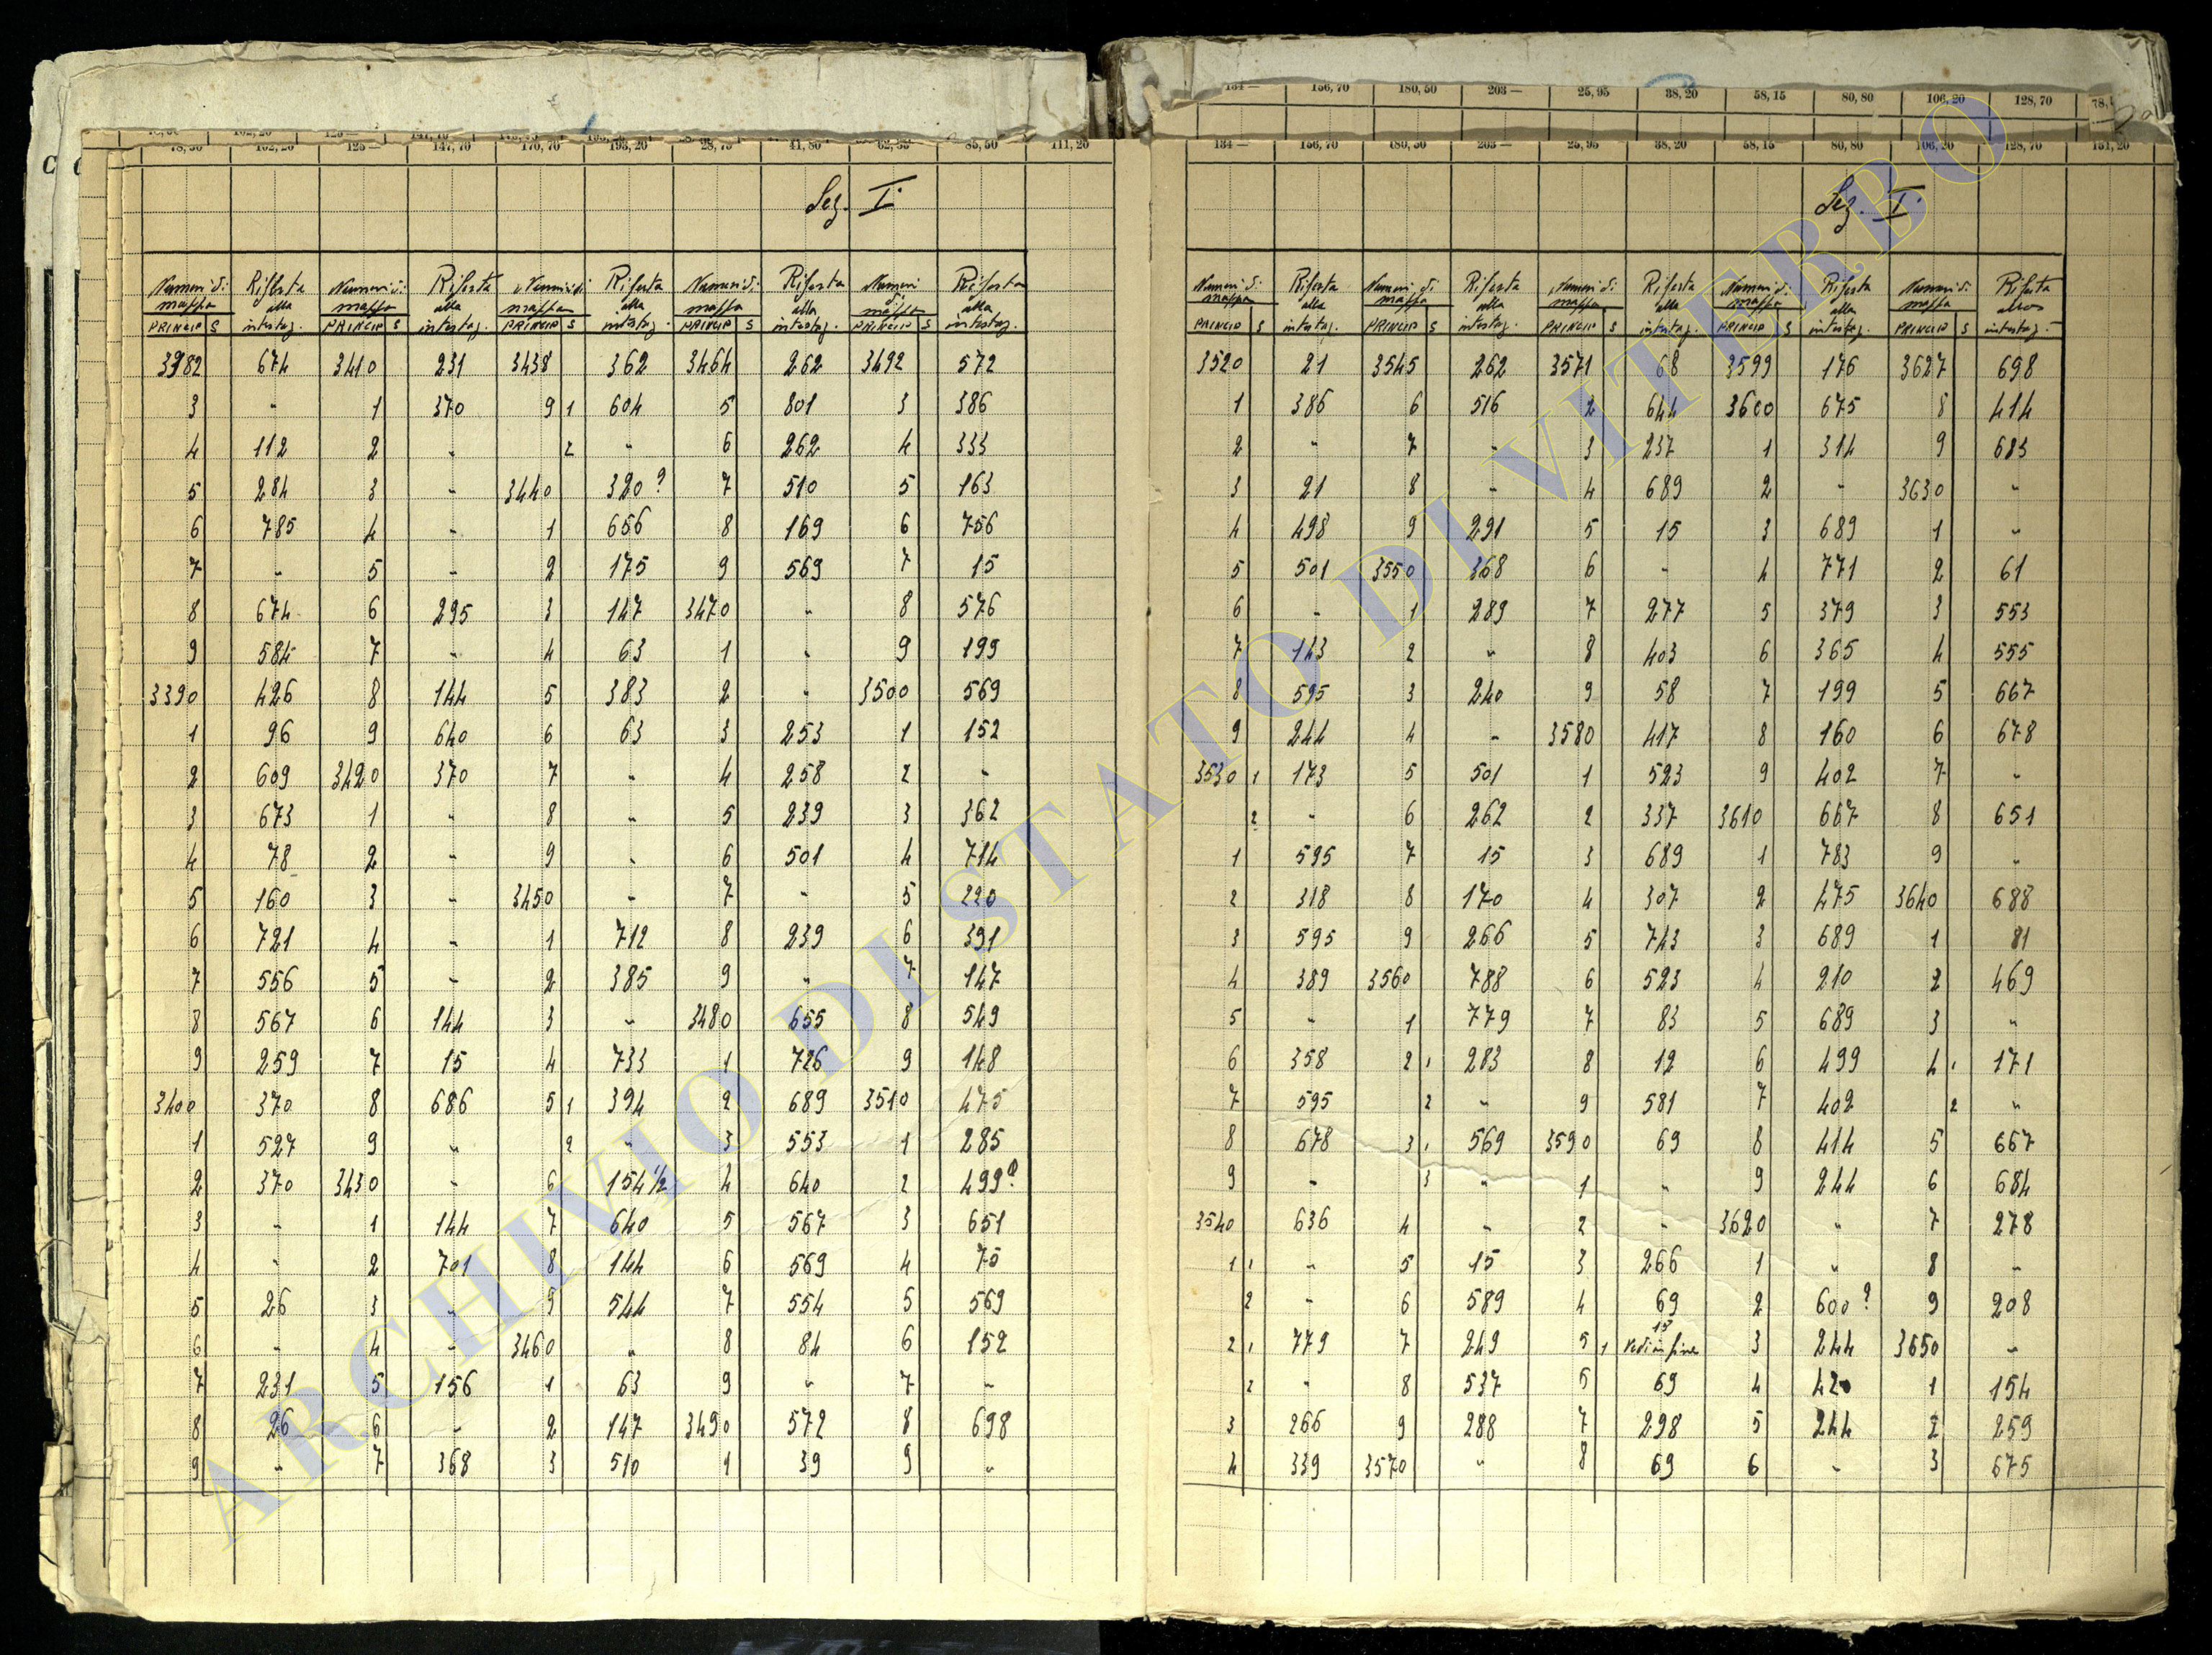 78,50 102,20 125 — 147,70 170,70 193,20 28,75 41,80 62,35 85,50 111,20
Sez. I.
Numeri di mappa Riferta alla intestaz. Numeri di mappa Riferta alla intestaz. Numeri di mappa Riferta alla intestaz. Numeri di mappa Riferta alla intestaz. Numeri di mappa Riferta alla intestaz.
PRINCIP S PRINCIP S PRINCIP S PRINCIP S PRINCIP S
3382 674 3410 231 3438 362 3464 262 3492 572
3 " 1 370 9 1 604 5 801 3 386
4 112 2 " 2 " 6 262 4 333
5 284 3 " 3440 320? 7 510 5 163
6 785 4 " 1 656 8 169 6 756
7 " 5 " 2 175 9 569 7 15
8 674 6 295 3 147 3470 " 8 576
9 584 7 " 4 63 1 " 9 199
3390 426 8 144 5 383 2 " 3500 569
1 96 9 640 6 63 3 253 1 152
2 609 3420 370 7 " 4 258 2 "
3 673 1 " 8 " 5 239 3 362
4 78 2 " 9 " 6 501 4 714
5 160 3 " 3450 " 7 " 5 220
6 721 4 " 1 712 8 239 6 391
7 556 5 " 2 385 9 " 7 147
8 567 6 144 3 " 3480 655 8 549
9 259 7 15 4 733 1 726 9 148
3400 370 8 686 5 1 394 2 689 3510 475
1 527 9 " 2 " 3 553 1 285
2 370 3430 " 6 154 1/2 4 640 2 499?
3 " 1 144 7 640 5 567 3 651
4 " 2 701 8 144 6 569 4 75
5 26 3 " 9 544 7 554 5 569
6 " 4 " 3460 " 8 84 6 152
7 231 5 156 1 63 9 " 7 "
8 26 6 " 2 147 3490 572 8 698
9 " 7 368 3 510 1 39 9 "
134 — 156,70 180,50 203 — 25,95 38,20 58,15 80,80 106,20 128,70
134 — 156,70 180,50 203 — 25,95 38,20 58,15 80,80 106,20 128,70 151,20
Sez. I.
Numeri di mappa Riferta alla intestaz. Numeri di mappa Riferta alla intestaz. Numeri di mappa Riferta alla intestaz. Numeri di mappa Riferta alla intestaz. Numeri di mappa Riferta alla intestaz.
PRINCIP S PRINCIP S PRINCIP S PRINCIP S PRINCIP S
3520 21 3545 262 3571 68 3599 176 3627 698
1 386 6 516 2 644 3600 675 8 414
2 " 7 " 3 237 1 314 9 683
3 21 8 " 4 689 2 " 3630 "
4 498 9 291 5 15 3 689 1 "
5 501 3550 368 6 " 4 771 2 61
6 " 1 289 7 277 5 379 3 553
7 143 2 " 8 403 6 365 4 555
8 595 3 240 9 58 7 199 5 667
9 244 4 " 3580 417 8 160 6 678
3530 1 173 5 501 1 523 9 402 7 "
2 " 6 262 2 337 3610 667 8 651
1 595 7 15 3 689 1 783 9 "
2 318 8 170 4 307 2 475 3640 688
3 595 9 266 5 743 3 689 1 81
4 389 3560 788 6 523 4 210 2 469
5 " 1 779 7 83 5 689 3 "
6 358 2 1 283 8 12 6 499 4 1 171
7 595 2 " 9 581 7 402 2 "
8 678 3 1 569 3590 69 8 414 5 667
9 " 3 " 1 " 9 244 6 684
3540 636 4 " 2 " 3620 " 7 278
1 1 " 5 15 3 266 1 " 8 "
2 " 6 589 4 69 2 600? 9 208
2 1 779 7 249 5 1 15 Vedi in fine 3 244 3650 "
2 " 8 537 6 69 4 420 1 154
3 266 9 288 7 298 5 244 2 259
4 339 3570 " 8 69 6 " 3 675
ARCHIVIO DI STATO DI VITERBO